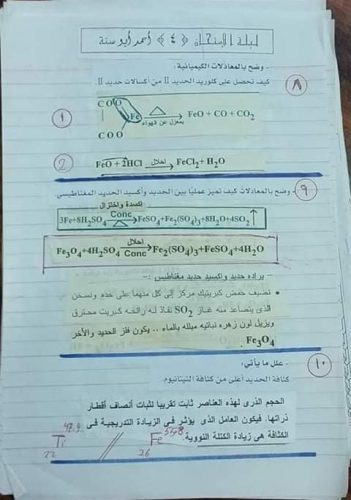 ليلة الامتحان ﴿٤﴾ أحمد أبو سنة
- وضح بالمعادلات الكيميائية :
٨
كيف تحصل على كلوريد الحديد II من أكسالات حديد II.
COO
1
Fe △ بمعزل عن الهواء → FeO + CO + CO₂
COO
2
FeO + 2HCl إحلال → FeCl₂ + H₂O
٩
- وضح بالمعادلات كيف تميز عمليا بين الحديد وأكسيد الحديد المغناطيسي
أكسدة واختزال
3Fe+8H₂SO₄ Conc △ → FeSO₄+Fe₂(SO₄)₃+8H₂O+4SO₂↑
Fe₃O₄+4H₂SO₄ إحلال Conc → Fe₂(SO₄)₃+FeSO₄+4H₂O
برادة حديد وأكسيد حديد مغناطيس :-
• نضيف حمض كبريتيك مركز إلى كل منهما على حده ونسخن
الذى يتصاعد منه غاز SO₂ نفاذ له رائحه كبريت محترق
ويزيل لون زهره نباتيه مبلله بالماء .. يكون فلز الحديد والآخر
Fe₃O₄ .
١٠
- علل ما يأتي:
كثافة الحديد أعلى من كثافة التيتانيوم.
الحجم الذرى لهذه العناصر ثابت تقريبا لثبات أنصاف أقطار
ذراتها، فيكون العامل الذى يؤثر فى الزيادة التدريجية فى
الكثافة هى زيادة الكتلة النووية.
47.9 Ti 22 // Fe 55.8 26